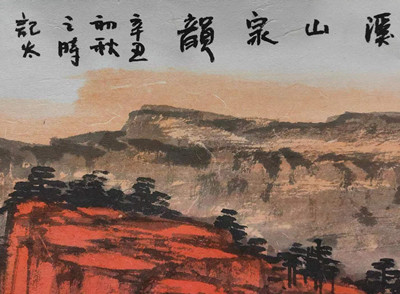 溪山泉韻
辛丑
初秋
之時
記太